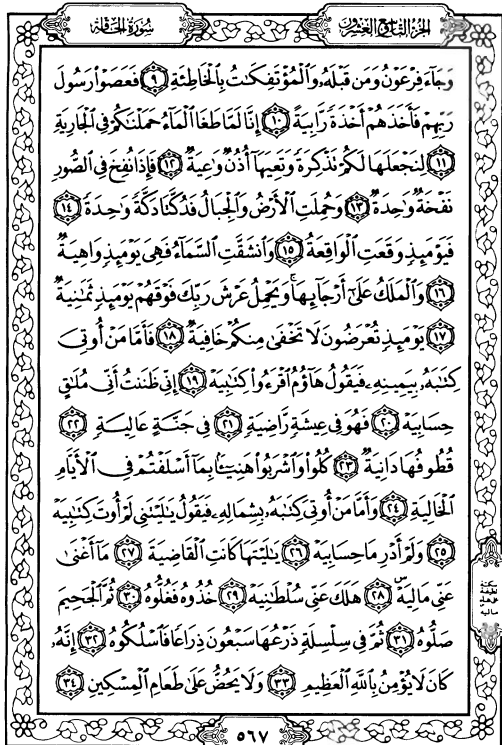 الجزء التاسع والعشرون
سورة الحاقة
وَجَآءَ فِرْعَوْنُ وَمَن قَبْلَهُۥ وَٱلْمُؤْتَفِكَٰتُ بِٱلْخَاطِئَةِ ۝٩ فَعَصَوْا۟ رَسُولَ
رَبِّهِمْ فَأَخَذَهُمْ أَخْذَةً رَّابِيَةً ۝١٠ إِنَّا لَمَّا طَغَا ٱلْمَآءُ حَمَلْنَٰكُمْ فِى ٱلْجَارِيَةِ
۝١١ لِنَجْعَلَهَا لَكُمْ تَذْكِرَةً وَتَعِيَهَآ أُذُنٌ وَٰعِيَةٌ ۝١٢ فَإِذَا نُفِخَ فِى ٱلصُّورِ
نَفْخَةٌ وَٰحِدَةٌ ۝١٣ وَحُمِلَتِ ٱلْأَرْضُ وَٱلْجِبَالُ فَدُكَّتَا دَكَّةً وَٰحِدَةً ۝١٤
فَيَوْمَئِذٍ وَقَعَتِ ٱلْوَاقِعَةُ ۝١٥ وَٱنشَقَّتِ ٱلسَّمَآءُ فَهِىَ يَوْمَئِذٍ وَاهِيَةٌ
۝١٦ وَٱلْمَلَكُ عَلَىٰٓ أَرْجَآئِهَا ۚ وَيَحْمِلُ عَرْشَ رَبِّكَ فَوْقَهُمْ يَوْمَئِذٍ ثَمَٰنِيَةٌ
۝١٧ يَوْمَئِذٍ تُعْرَضُونَ لَا تَخْفَىٰ مِنكُمْ خَافِيَةٌ ۝١٨ فَأَمَّا مَنْ أُوتِىَ
كِتَٰبَهُۥ بِيَمِينِهِۦ فَيَقُولُ هَآؤُمُ ٱقْرَءُوا۟ كِتَٰبِيَهْ ۝١٩ إِنِّى ظَنَنتُ أَنِّى مُلَٰقٍ
حِسَابِيَهْ ۝٢٠ فَهُوَ فِى عِيشَةٍ رَّاضِيَةٍ ۝٢١ فِى جَنَّةٍ عَالِيَةٍ ۝٢٢
قُطُوفُهَا دَانِيَةٌ ۝٢٣ كُلُوا۟ وَٱشْرَبُوا۟ هَنِيٓـًٔۢا بِمَآ أَسْلَفْتُمْ فِى ٱلْأَيَّامِ
ٱلْخَالِيَةِ ۝٢٤ وَأَمَّا مَنْ أُوتِىَ كِتَٰبَهُۥ بِشِمَالِهِۦ فَيَقُولُ يَٰلَيْتَنِى لَمْ أُوتَ كِتَٰبِيَهْ
۝٢٥ وَلَمْ أَدْرِ مَا حِسَابِيَهْ ۝٢٦ يَٰلَيْتَهَا كَانَتِ ٱلْقَاضِيَةَ ۝٢٧ مَآ أَغْنَىٰ
عَنِّى مَالِيَهْ ۜ ۝٢٨ هَلَكَ عَنِّى سُلْطَٰنِيَهْ ۝٢٩ خُذُوهُ فَغُلُّوهُ ۝٣٠ ثُمَّ ٱلْجَحِيمَ
صَلُّوهُ ۝٣١ ثُمَّ فِى سِلْسِلَةٍ ذَرْعُهَا سَبْعُونَ ذِرَاعًا فَٱسْلُكُوهُ ۝٣٢ إِنَّهُۥ
كَانَ لَا يُؤْمِنُ بِٱللَّهِ ٱلْعَظِيمِ ۝٣٣ وَلَا يَحُضُّ عَلَىٰ طَعَامِ ٱلْمِسْكِينِ ۝٣٤
٥٦٧